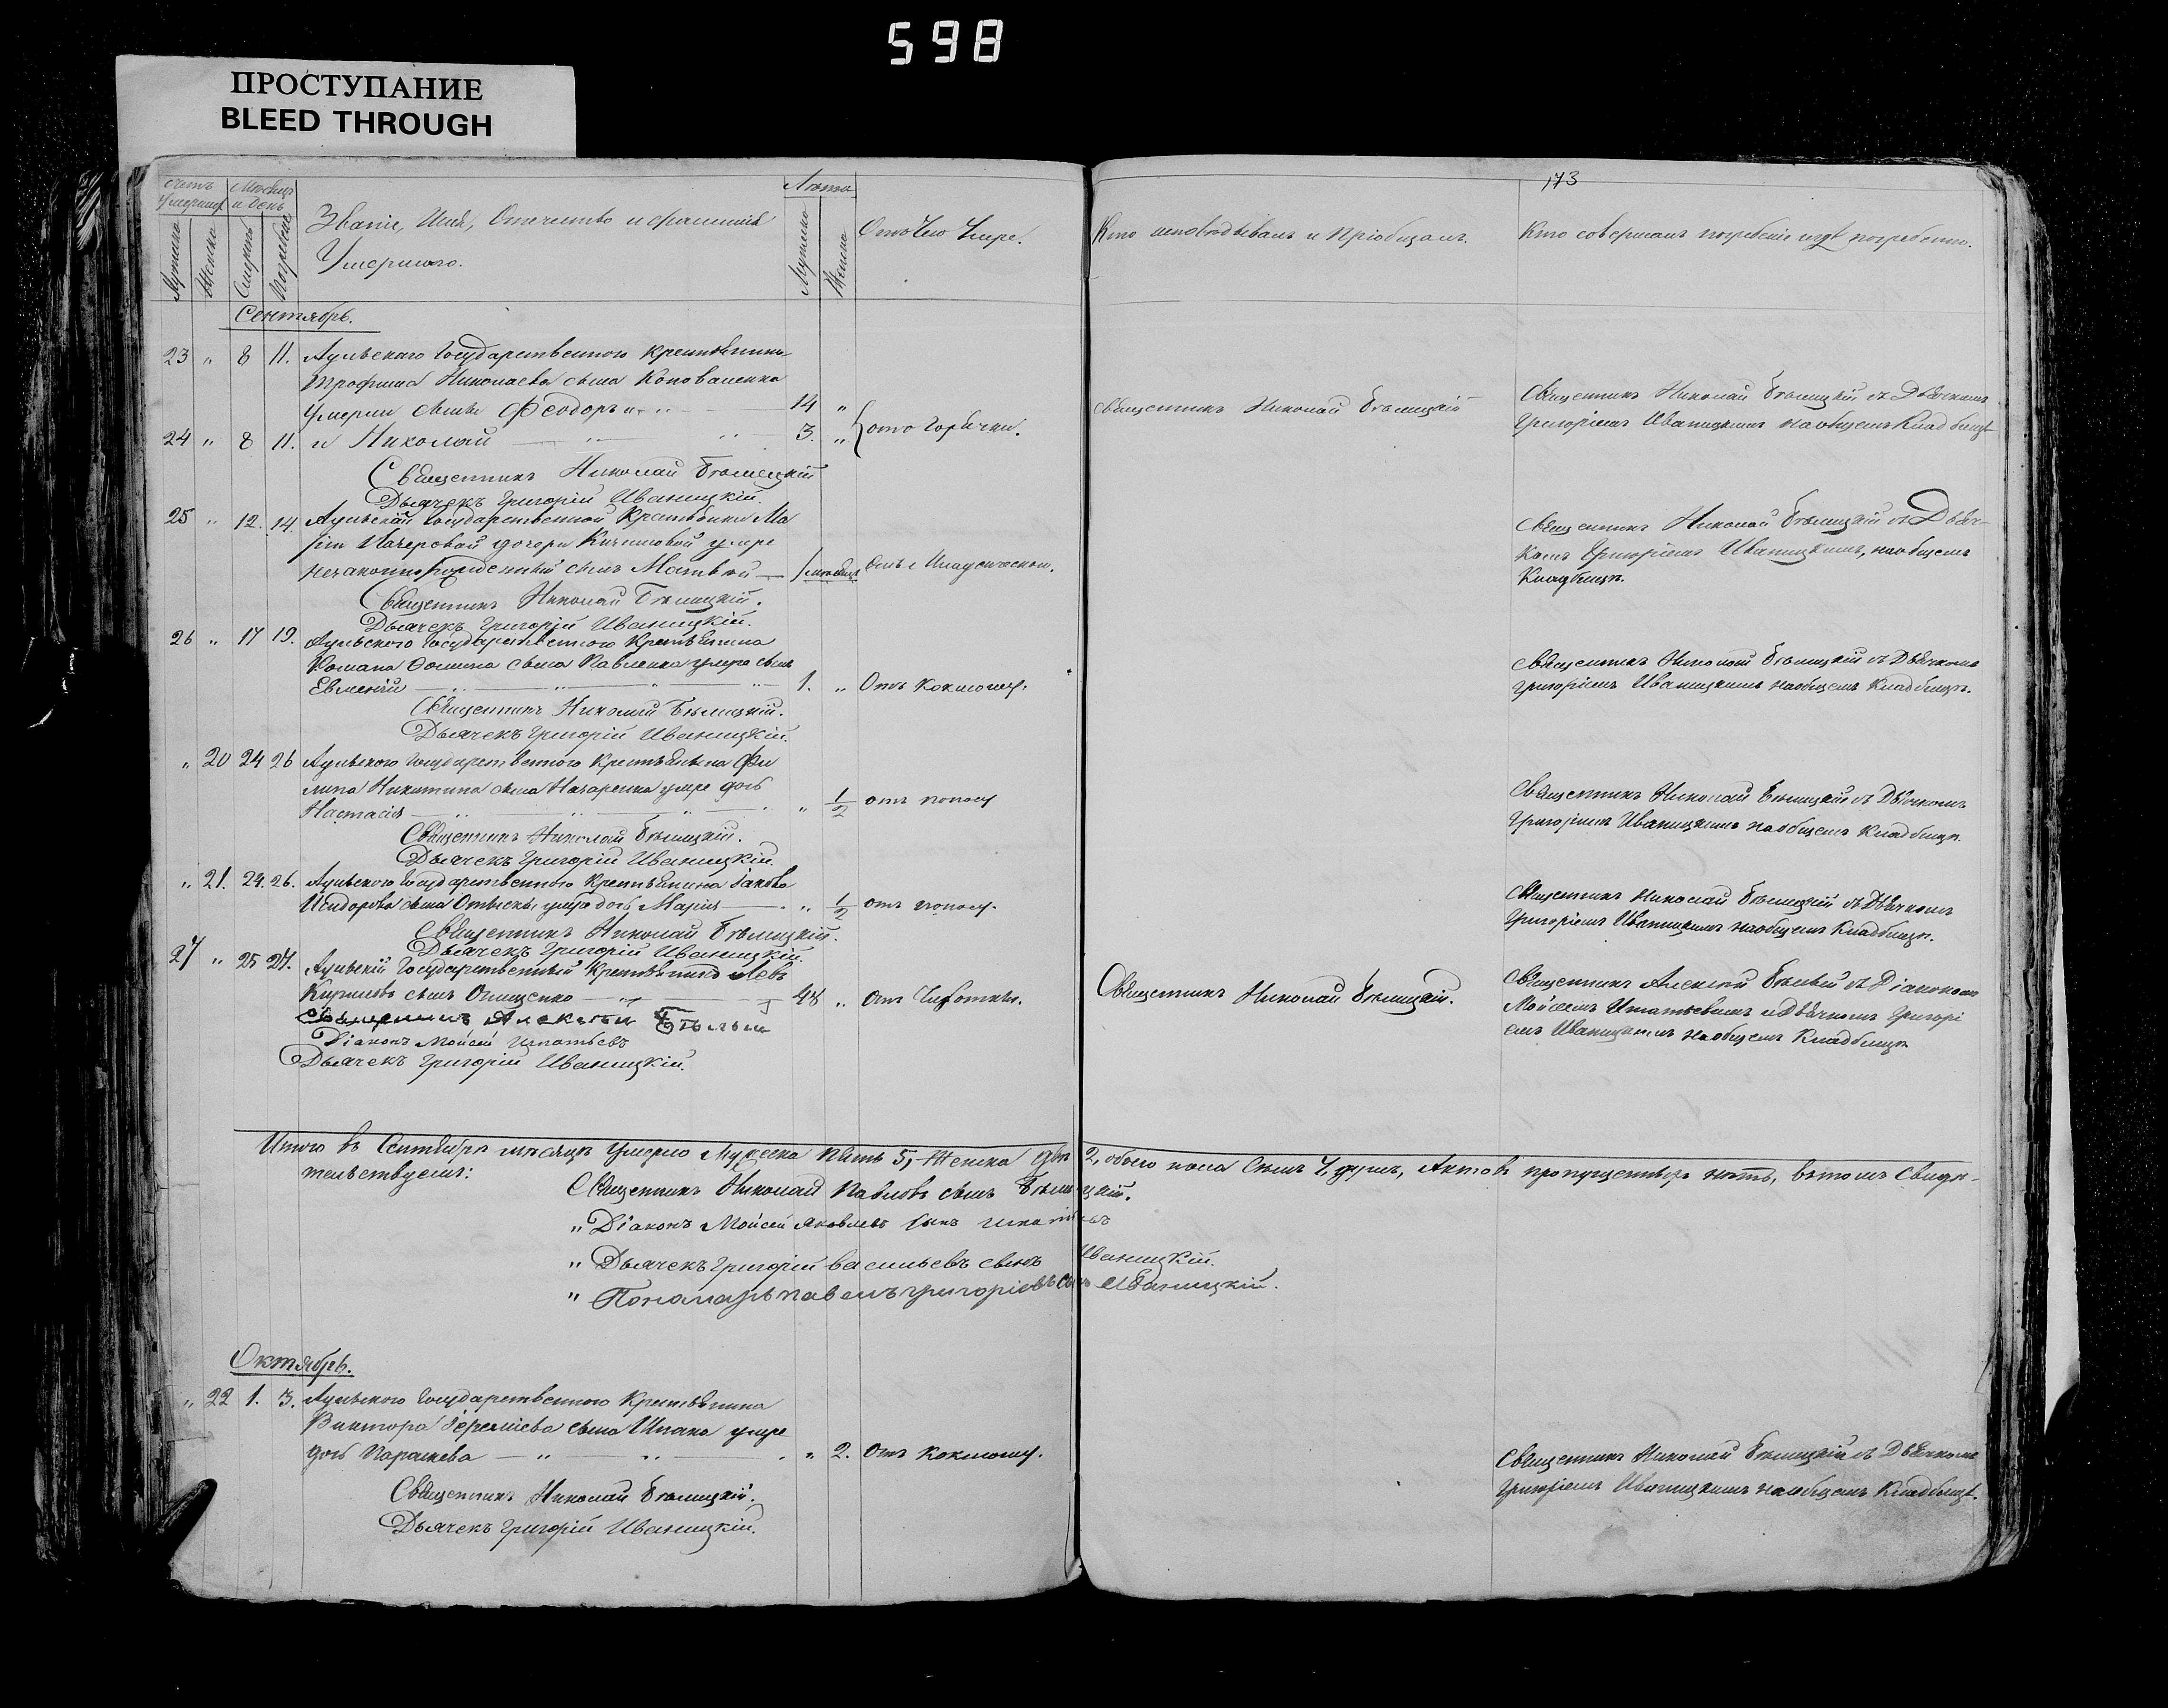 598
ПРОСТУПАНИЕ
BLEED THROUGH
173
Счетъ умершихъ
Мѣсяцъ и день
Лѣта
Мужеска
Женска
Смерть
Погребеніе
Званіе, Имя, Отчество и фамилія
Умершаго.
Мужеска
Женска
Отъ чего умре.
Кто исповѣдывалъ и пріобщалъ.
Кто совершалъ погребеніе и гдѣ погребены.
Сентябрь.
23 „ 8 11. Аульскаго Государственнаго крестьянина
Трофима Николаева сына Коноваленка
умерли сыны Феодоръ 14 „
24 „ 8 11. и Николай 3. „ отъ горячки.
Священникъ Николай Бѣлицкій
Священникъ Николай Бѣлицкій съ Дьячкомъ
Григоріемъ Иваницкимъ на общемъ Кладбищѣ
Священникъ Николай Бѣлицкій
Дьячекъ Григорій Иваницкій.
25 „ 12. 14 Аульской Государственной Крестьянки Ма
дочери умре
незаконнорожденный сынъ Матвей 1 мѣсяцъ
Священникъ Николай Бѣлицкій съ Дьяч-
комъ Григоріемъ Иваницкимъ, на общемъ
Кладбищѣ.
Священникъ Николай Бѣлицкій.
Дьячекъ Григорій Иваницкій.
26 „ 17 19. Аульского Государственного Крестьянина
Романа Фомина сына Павленка умре сынъ
Евменій 1. „ Отъ коклюшу.
Священникъ Николай Бѣлицкій съ Дьячкомъ
Григоріемъ Иваницкимъ на общемъ Кладбищѣ.
Священникъ Николай Бѣлицкій.
Дьячекъ Григорій Иваницкій.
„ 20 24 26 Аульского Государственного Крестьянина Фи
липа Никитина сына Назаренка умре дочь
Настасія „ 1/2 отъ поносу
Священникъ Николай Бѣлицкій съ Дьячкомъ
Григоріемъ Иваницкимъ на общемъ Кладбищѣ.
Священникъ Николай Бѣлицкій.
Дьячекъ Григорій Иваницкій.
„ 21. 24. 26. Аульского Государственного Крестьянина Іакова
Исидорова сына умре дочь Марія „ 1/2 отъ поносу.
Священникъ Николай Бѣлицкій съ Дьячкомъ
Григоріемъ Иваницкимъ на общемъ Кладбищѣ.
Священникъ Николай Бѣлицкій.
Дьячекъ Григорій Иваницкій.
27 „ 25 27. Аульскій Государственный Крестьянинъ Левъ
Кириловъ сынъ Онищенко 48 „ Отъ Чихотки.
Священникъ Николай Бѣлицкій.
Священникъ Алексѣй Бѣлый съ Діакономъ
Мойсеемъ Игнатьевымъ и Дьячкомъ Григорі
емъ Иваницкимъ на общемъ Кладбищѣ
Священникъ Алексѣй Бѣлый
Діаконъ Мойсей Игнатьевъ
Дьячекъ Григорій Иваницкій.
Итого въ Сентябрѣ мѣсяцѣ умерло Мужеска пять 5, Женска двѣ 2, обоего пола семь 7 душъ, Актовъ пропущенныхъ нѣтъ, въ томъ свидѣ-
тельствуемъ:
Священникъ Николай Павловъ сынъ Бѣлицкій.
„ Діаконъ Мойсей Яковлевъ сынъ Игнатьевъ
„ Дьячекъ Григорій Васильевъ сынъ Иваницкій.
„ Пономарь Павелъ Григоріевъ сынъ Иваницкій.
Октябрь.
„ 22 1. 3. Аульского Государственного Крестьянина
Виктора Іереміева сына Шпака умре
дочь Параскева „ 2. Отъ коклюшу.
Священникъ Николай Бѣлицкій съ Дьячкомъ
Григоріемъ Иваницкимъ на общемъ Кладбищѣ.
Священникъ Николай Бѣлицкій.
Дьячекъ Григорій Иваницкій.